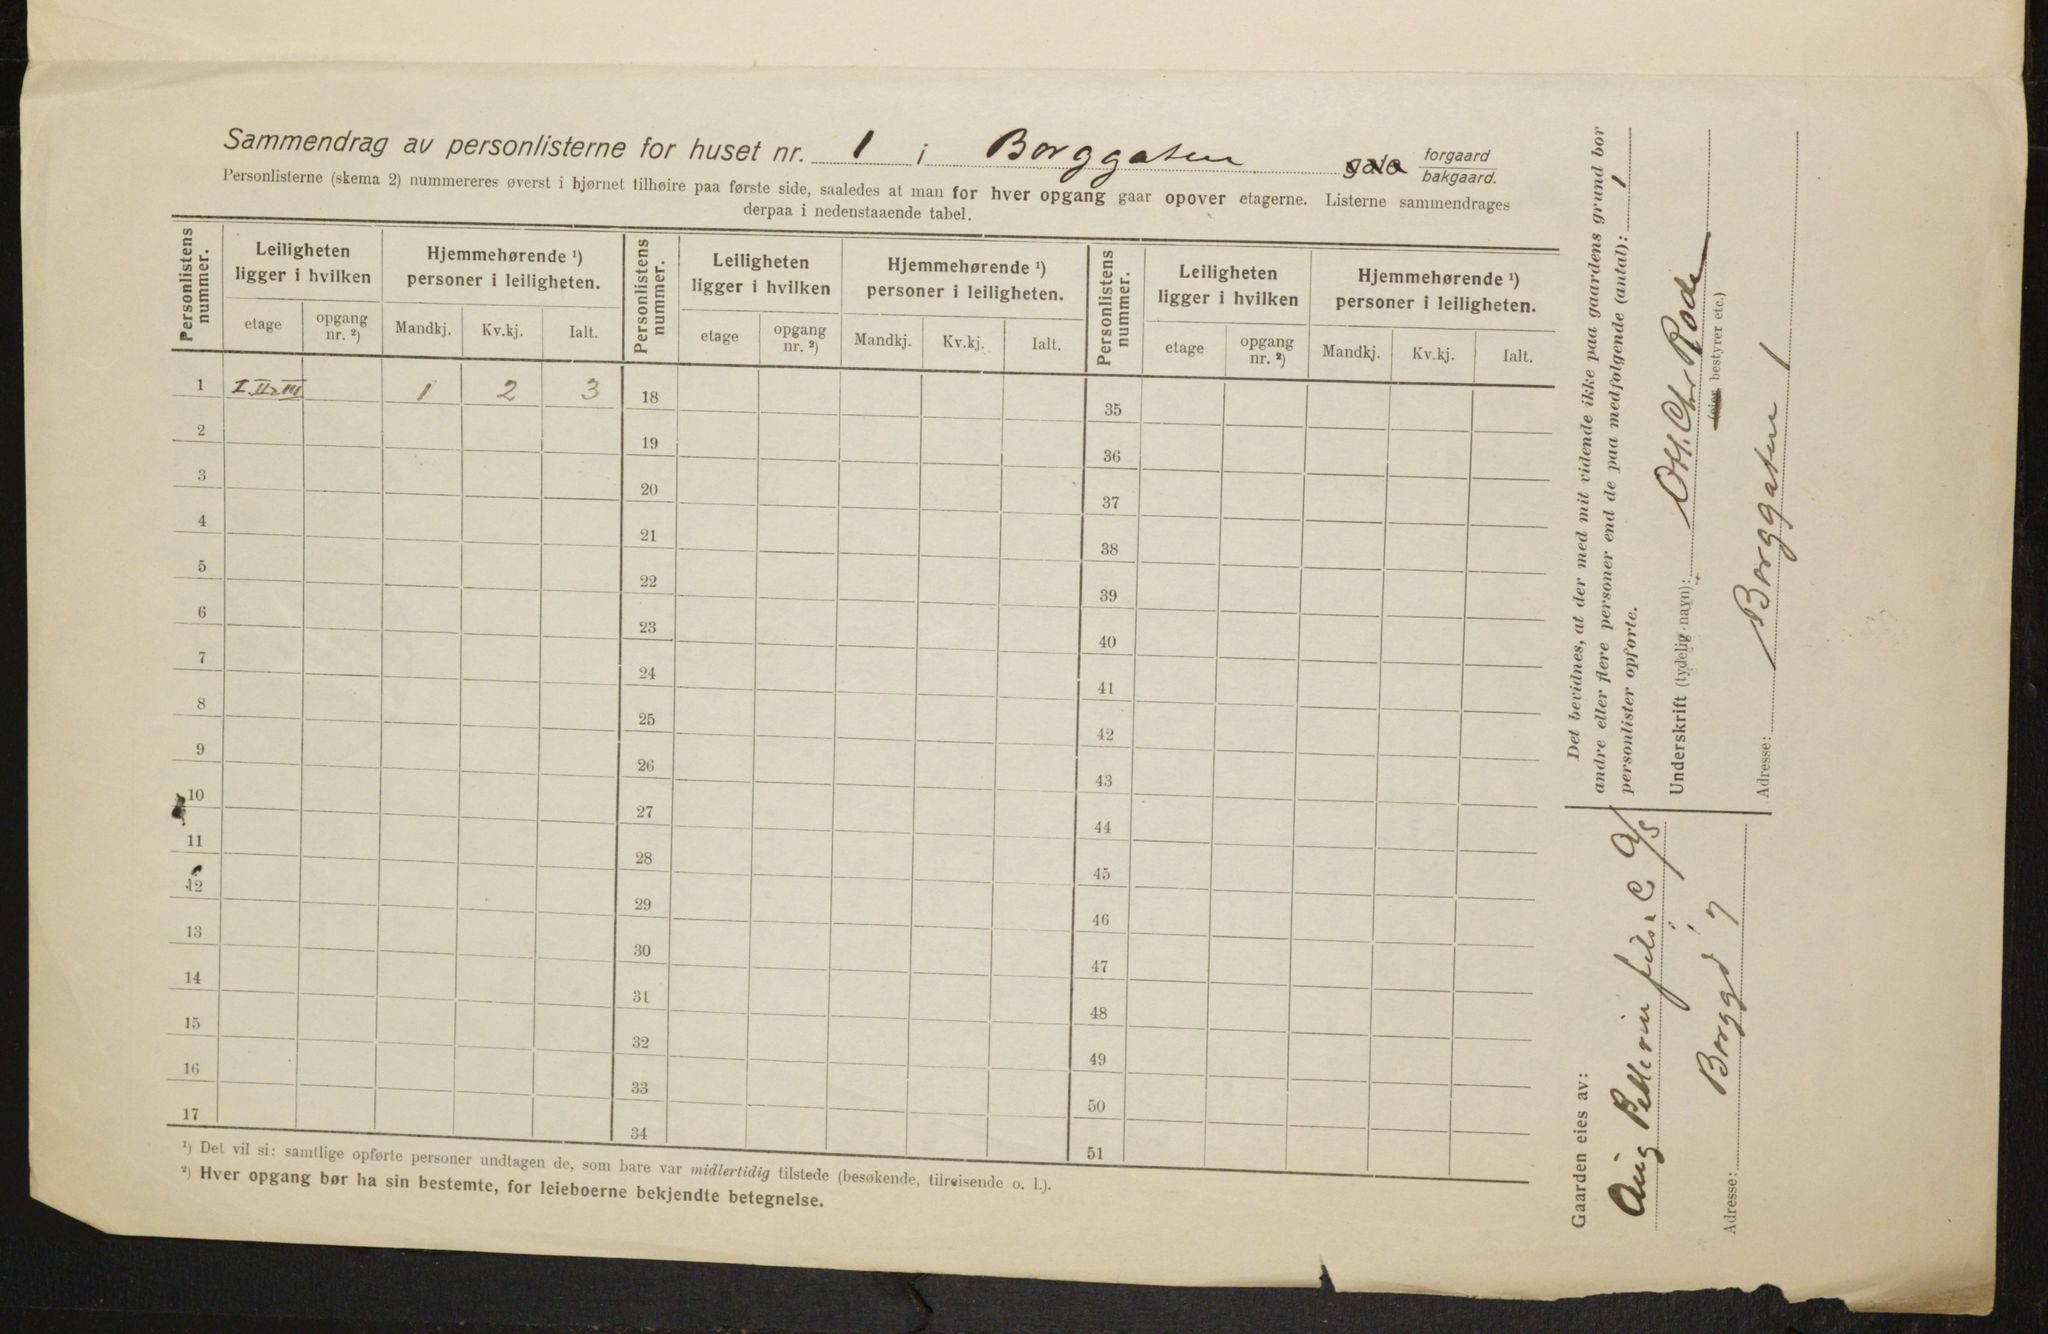 Sammendrag av personlisterne for huset nr. 1 i Borggaten gate forgaard bakgaard.
Personlisterne (skema 2) nummereres øverst i hjørnet tilhøire paa første side, saaledes at man for hver opgang gaar opover etagerne. Listerne sammendrages
derpaa i nedenstaaende tabel.
Personlistens nummer. Leiligheten ligger i hvilken Hjemmehørende ¹) personer i leiligheten. Personlistens nummer. Leiligheten ligger i hvilken Hjemmehørende ¹) personer i leiligheten. Personlistens nummer. Leiligheten ligger i hvilken Hjemmehørende ¹) personer i leiligheten.
etage opgang nr. ²) Mandkj. Kv.kj. Ialt. etage opgang nr. ²) Mandkj. Kv.kj. Ialt. etage opgang nr. ²) Mandkj. Kv.kj. Ialt.
1 I II & III 1 2 3 18 35
2 19 36
3 20 37
4 21 38
5 22 39
6 23 40
7 24 41
8 25 42
9 26 43
10 27 44
11 28 45
12 29 46
13 30 47
14 31 48
15 32 49
16 33 50
17 34 51
¹) Det vil si: samtlige opførte personer undtagen de, som bare var midlertidig tilstede (besøkende, tilreisende o. l.).
²) Hver opgang bør ha sin bestemte, for leieboerne bekjendte betegnelse.
Det bevidnes, at der med mit vidende ikke paa gaardens grund bor
andre eller flere personer end de paa medfølgende (antal): 1
personlister opførte.
Underskrift (tydelig navn): Chr Rode
(eier bestyrer etc.)
Adresse: Borggaten 1
Gaarden eies av:
Aug Pellerin fils & C A/S
Adresse: Borggt 7